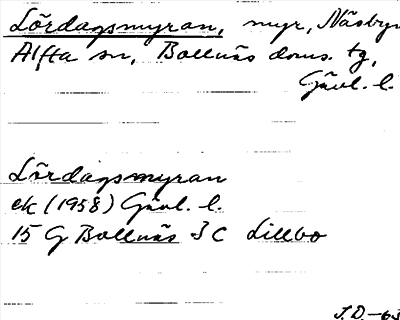 Lördagsmyran, myr, Näsbyn
Alfta sn, Bollnäs doms. tg,
Gävl. l.
Lördagsmyran
ek (1958) Gävl. l.
15 G Bollnäs 3 C Lillbo
J.D.-63